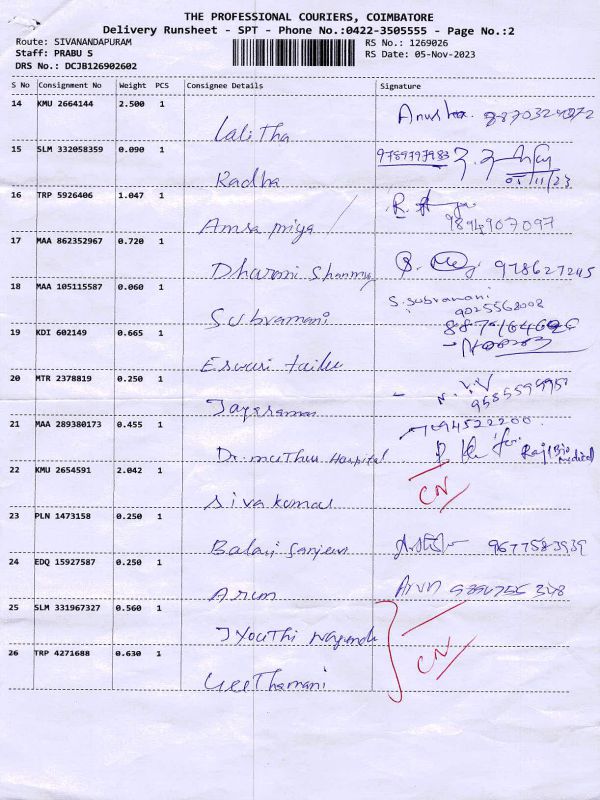 THE PROFESSIONAL COURIERS, COIMBATORE
Delivery Runsheet - SPT - Phone No.:0422-3505555 - Page No.:2
Route: SIVANANDAPURAM RS No.: 1269026
Staff: PRABU S RS Date: 05-Nov-2023
DRS No.: DCJB126902602
S No Consignment No Weight PCS Consignee Details Signature
14 KMU 2664144 2.500 1
Lalitha
15 SLM 332058359 0.090 1 9789797983
Radha 05/11/23
16 TRP 5926406 1.047 1
Amsa priya 9894907097
17 MAA 862352967 0.720 1
Dharani Shanmu
18 MAA 105115587 0.060 1 S. Subramani
Subramani 9025562002
19 KDI 602149 0.665 1
Eswari tailu
20 MTR 2378819 0.250 1
Jayaraman
21 MAA 289380173 0.455 1
Dr. muthus Hospital Raj Bio Medical
22 KMU 2654591 2.042 1 CN
Sivakumar
23 PLN 1473158 0.250 1
Balaji Sanjeev 9677583939
24 EDQ 15927587 0.250 1 Arun
Arun
25 SLM 331967327 0.560 1
Jyouthi CN
26 TRP 4271688 0.630 1
Geethamani